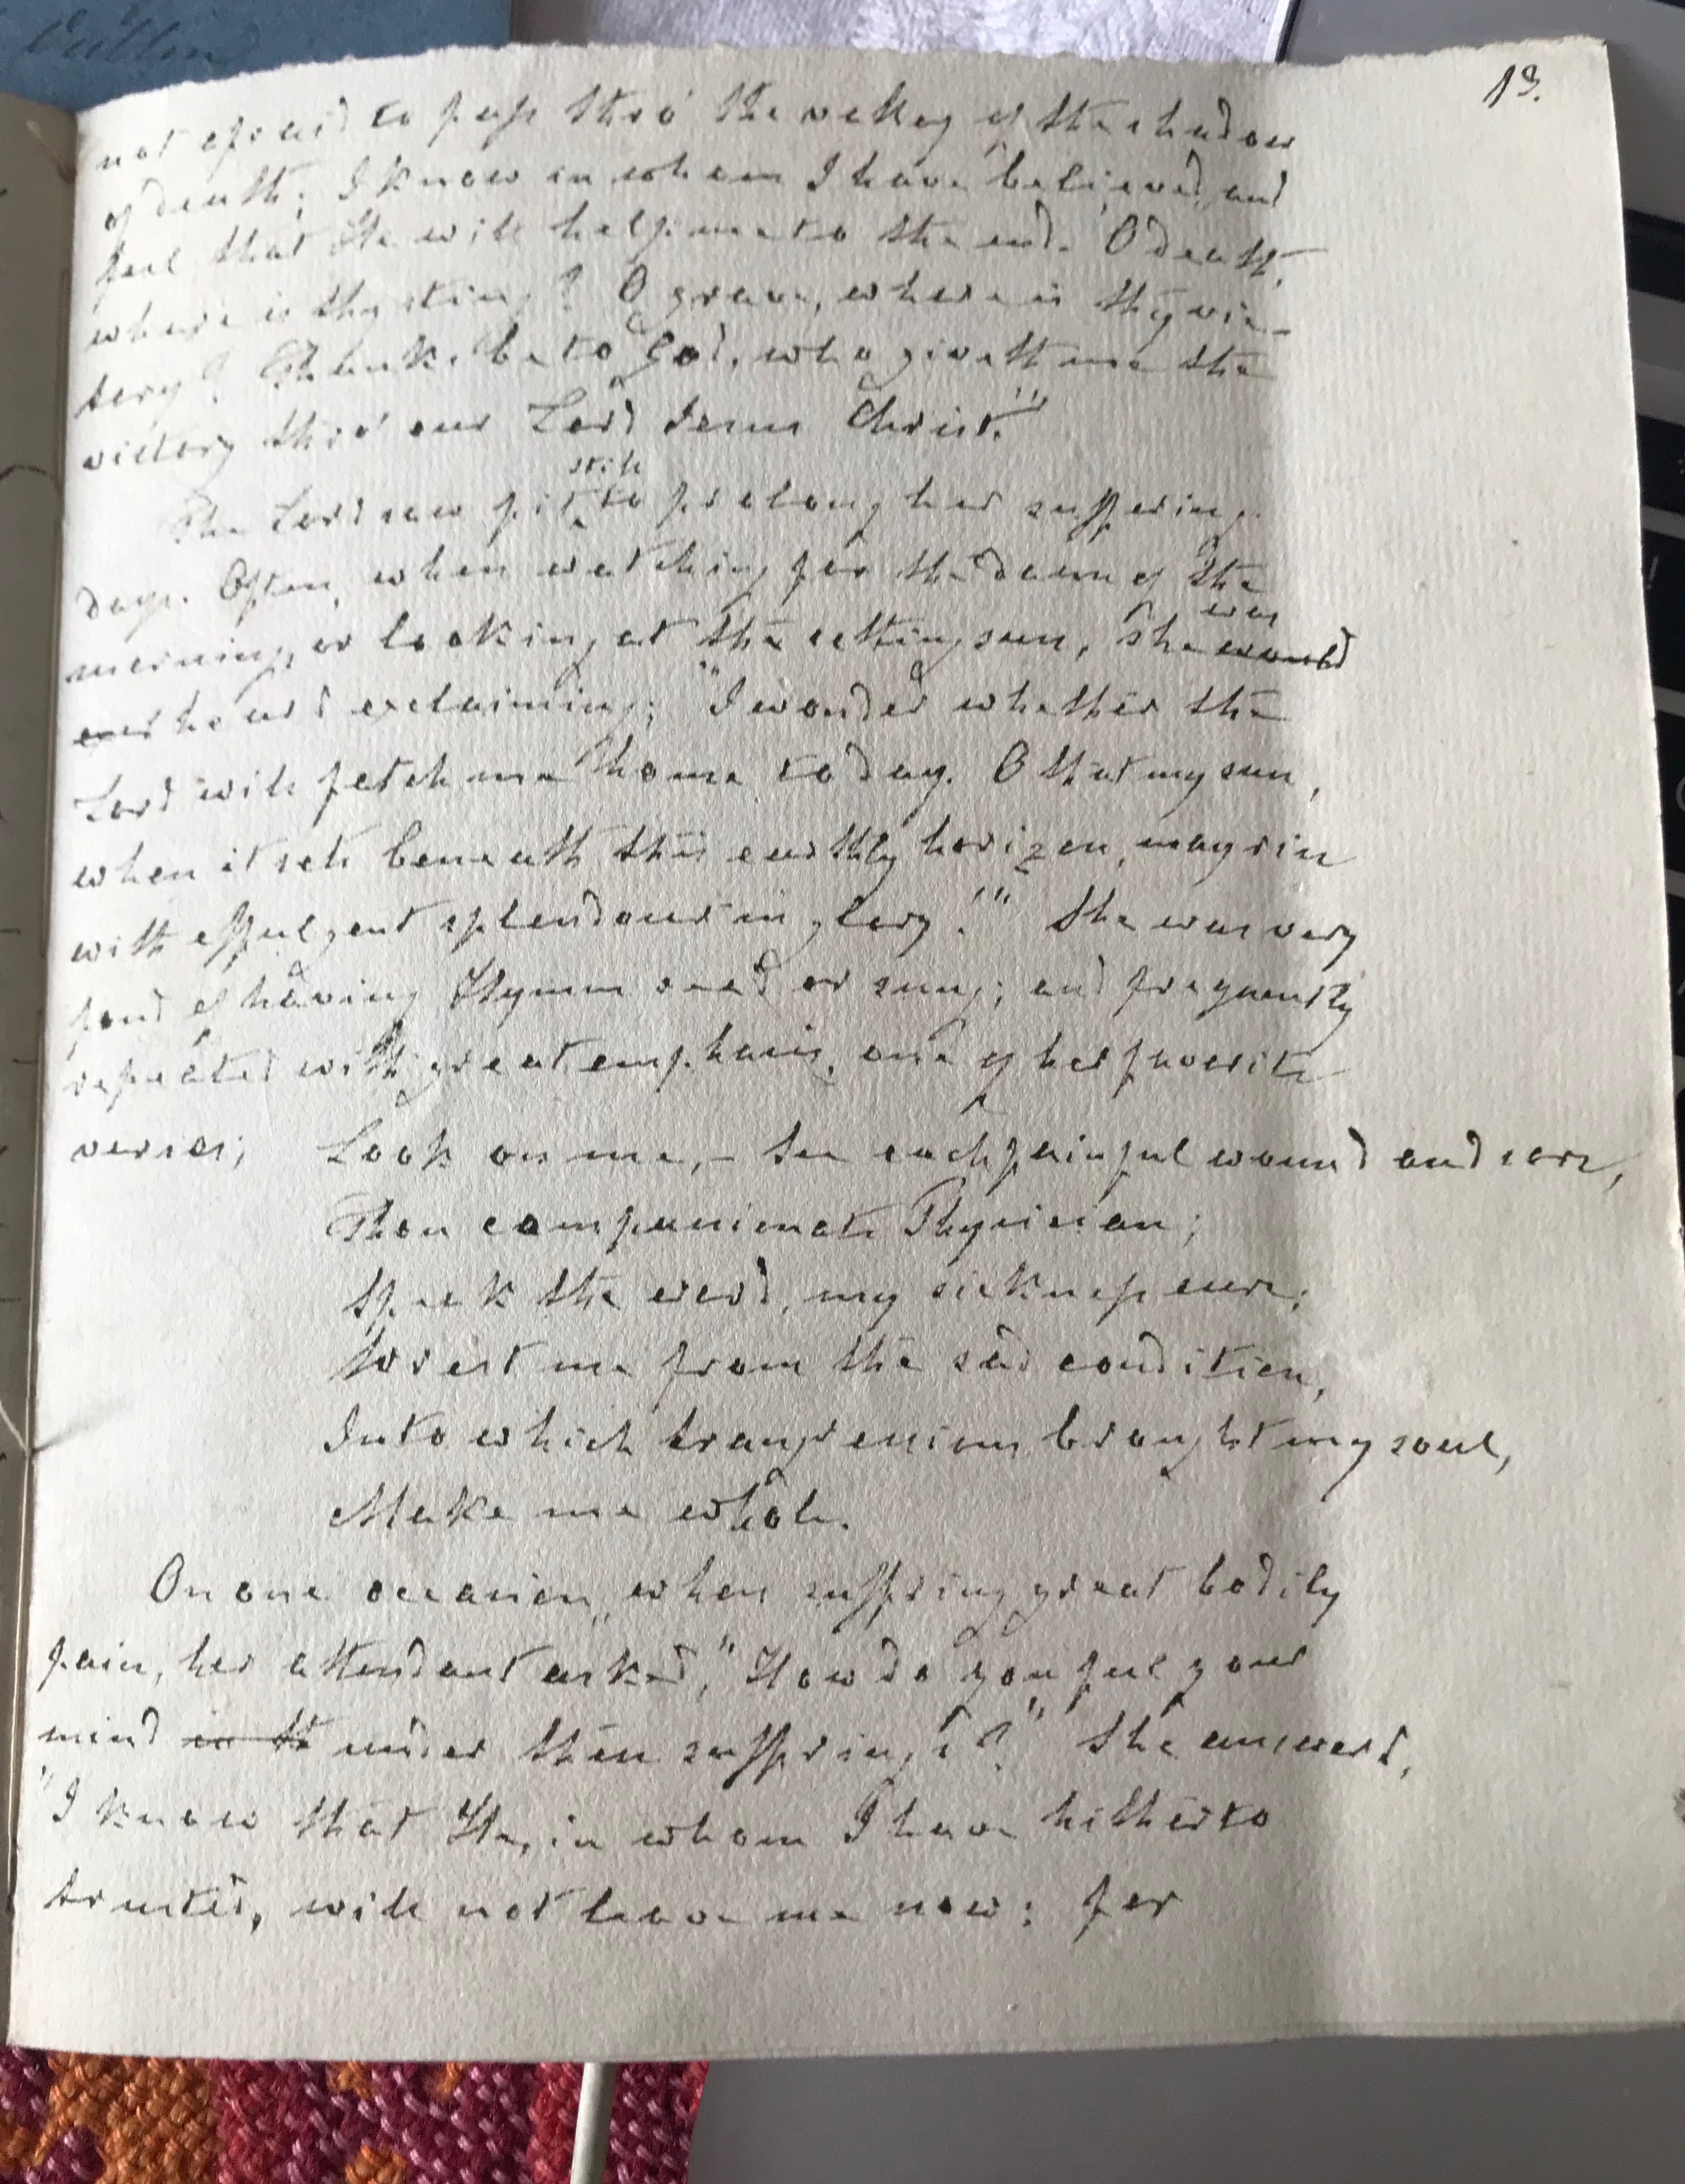 13.
not afraid to pass thro' the valley of the shadow
of death; I know in whom I have believed, and
feel that He will help me to the end. O death,
where is thy sting? O grave, where is thy vic-
tory? Thanks be to God, who giveth me the
victory thro' our Lord Jesus Christ."
still
The Lord saw fit to prolong her suffering
days. Often, when watching for the dawn of the
was
morning, or looking at the setting sun, she would
heard exclaiming; "I wonder whether the
Lord will fetch me home to day. O that my sun,
when it sets beneath this earthly horizon, may rise
with effulgent splendour in glory!" She was very
fond of having Hymns read or sung; and frequently
repeated with great emphasis, one of her favorite
verses; Look on me,- see each painful wound and sore,
Thou compassionate Physician;
Speak the word, my sickness cure;
Wrest me from the sad condition,
Into which transgressions brought my soul,
Make me whole.
On one occasion, when suffring great bodily
pain, her attendant asked, "How do you feel your
mind in th under these suffrings?" She answerd,
"I know that He, in whom I have hitherto
trusted, will not leave me now: for